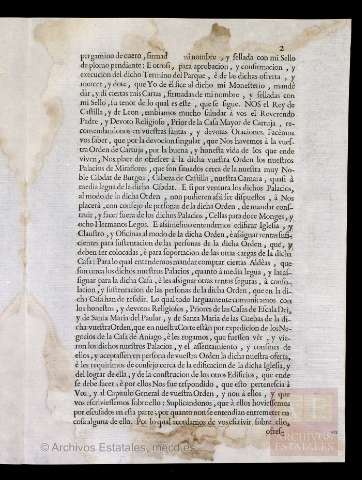 2
pergamino de cuero, firmad mi nombre, y sellada con mi Sello
de plomo pendiente: E otrosi para aprobacion, y confirmacion, y
execucion del dicho Termino del Parque, è de las dichas ofertas, y
merced, y dote, que Yo dè è fice al dicho mi Monesterio, mandè
dar, y di ciertas mis Cartas, firmadas de mi nombre, y selladas con
mi Sello, su tenor de lo qual es este, que se sigue. NOS el Rey de
Castilla, y de Leon, embiamos mucho saludar à vos el Reverendo
Padre, y Devoto Religioso, Prior de la Casa Mayor de Cartuja, re-
comendandonos en vuestras santas, y devotas Oraciones. Facemos
vos saber, que por la devocion singular, que Nos havemos à la vuest-
tra Orden de Cartuja, por la buena, y honesta vida de los que ende
viven, Nos place de ofrescer à la dicha vuestra Orden los nuestros
Palacios de Miraflores, que son situados cerca de la nuestra muy No-
ble Cibdat de Burgos, Cabeza de Castilla, nuestra Camara, quasi à
media legua de la dicha Cibdat. E si por ventura los dichos Palacios,
al modo de la dicha Orden, non pudiesen assi ser dispuestos, à Nos
placerà, con consejo de personas de la dicha Orden, de mandar cons-
truir, y facer fuera de los dichos Palacios, Cellas para doce Monges, y
ocho Hermanos Legos. E assimesmo entendemos edificar Iglesia, y
Claustro, y Oficinas al modo de la dicha Orden, è assignar rentas sufi-
cientes para sustentacion de las personas de la dicha Orden, que, y
deben ser colocadas, è para soportacion de las otras cargas de la dicha
Casa: Para lo qual entendemos mandar comprar ciertas Aldèas, que
son cerca los dichos nuestros Palacios, quanto à media legua, y las as-
signar para la dicha Casa, è les assignar otras rentas seguras, à conso-
lacion, y sustentacion de las personas de la dicha Orden, que en la di-
cha Casa han de residir. Lo qual todo larguamente comunicamos con
los honestos, y devotos Religiosos, Priores de las Casas de Escala Dei,
y de Santa Maria del Paular, y de Santa Maria de las Cuebas de la di-
cha vuestra Orden, que en nuestra Corte están por expedicion de los Ne-
gocios de la Casa de Aniago, è les rogamos, que fuessen vèr, y vie-
ron los dichos nuestros Palacios, y el assentamiento, y confines de
ellos, y aceptassen en persona de vuestra Orden la dicha nuestra oferta,
è les requirimos de consejo cerca de la edificacion de la dicha Iglesia, y
del lograr de ella, y de la construcion de los otros Edificios, que ende
se debe facer, è por ellos Nos fue respondido, que esto pertenescia à
Vos, y al Capitulo General de vuestra Orden, y non à ellos, y que
vos escriviessemos sobre ello: Suplicandonos, que à ellos hoviessemos
por escusados en esta parte, por quanto non se entendian entremeter en
cosa alguna de ello. Por lo qual acordamos de vos escrivir sobre ello,
ofres-
© Archivos Estatales, mecd.es
ARCHIVOS
ESTATALES